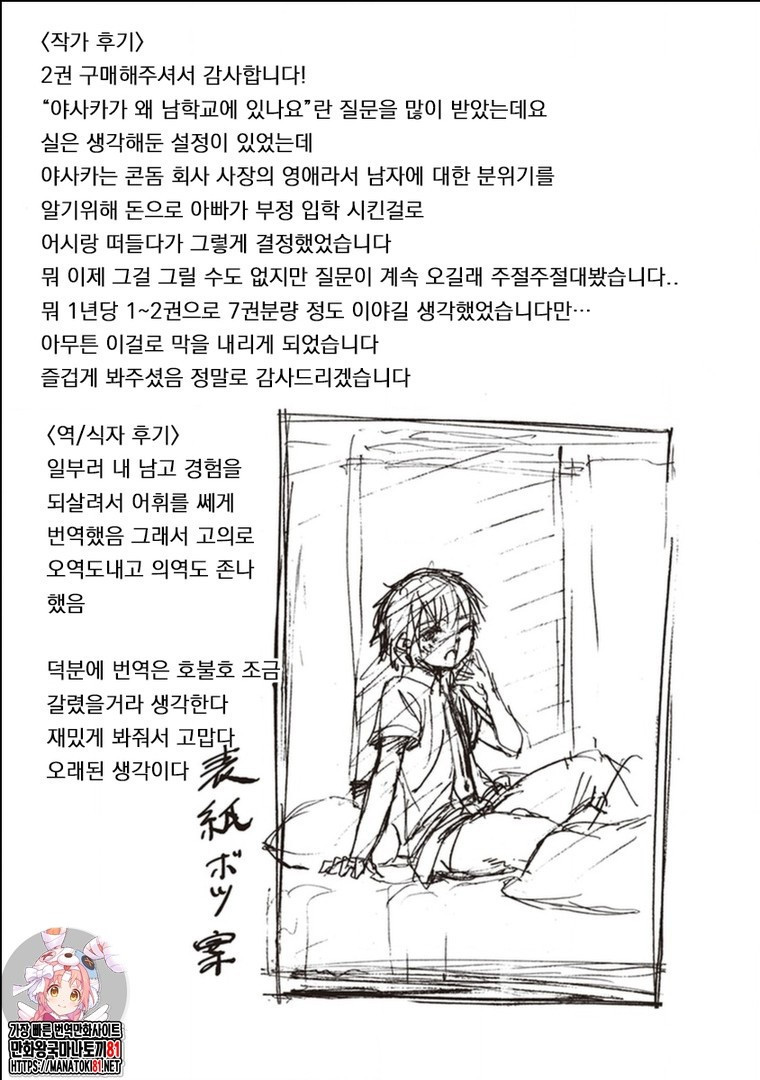 <작가 후기>
2권 구매해주셔서 감사합니다!
“야사카가 왜 남학교에 있나요”란 질문을 많이 받았는데요
실은 생각해둔 설정이 있었는데
야사카는 콘돔 회사 사장의 영애라서 남자에 대한 분위기를
알기위해 돈으로 아빠가 부정 입학 시킨걸로
어시랑 떠들다가 그렇게 결정했었습니다
뭐 이제 그걸 그릴 수도 없지만 질문이 계속 오길래 주절주절대봤습니다..
뭐 1년당 1~2권으로 7권분량 정도 이야길 생각했었습니다만…
아무튼 이걸로 막을 내리게 되었습니다
즐겁게 봐주셨음 정말로 감사드리겠습니다
<역/식자 후기>
일부러 내 남고 경험을
되살려서 어휘를 쎄게
번역했음 그래서 고의로
오역도내고 의역도 존나
했음
덕분에 번역은 호불호 조금
갈렸을거라 생각한다
재밌게 봐줘서 고맙다
오래된 생각이다
表紙ボツ案
가장 빠른 번역만화사이트
만화왕국마나토끼81
HTTPS://MANATOKI81.NET